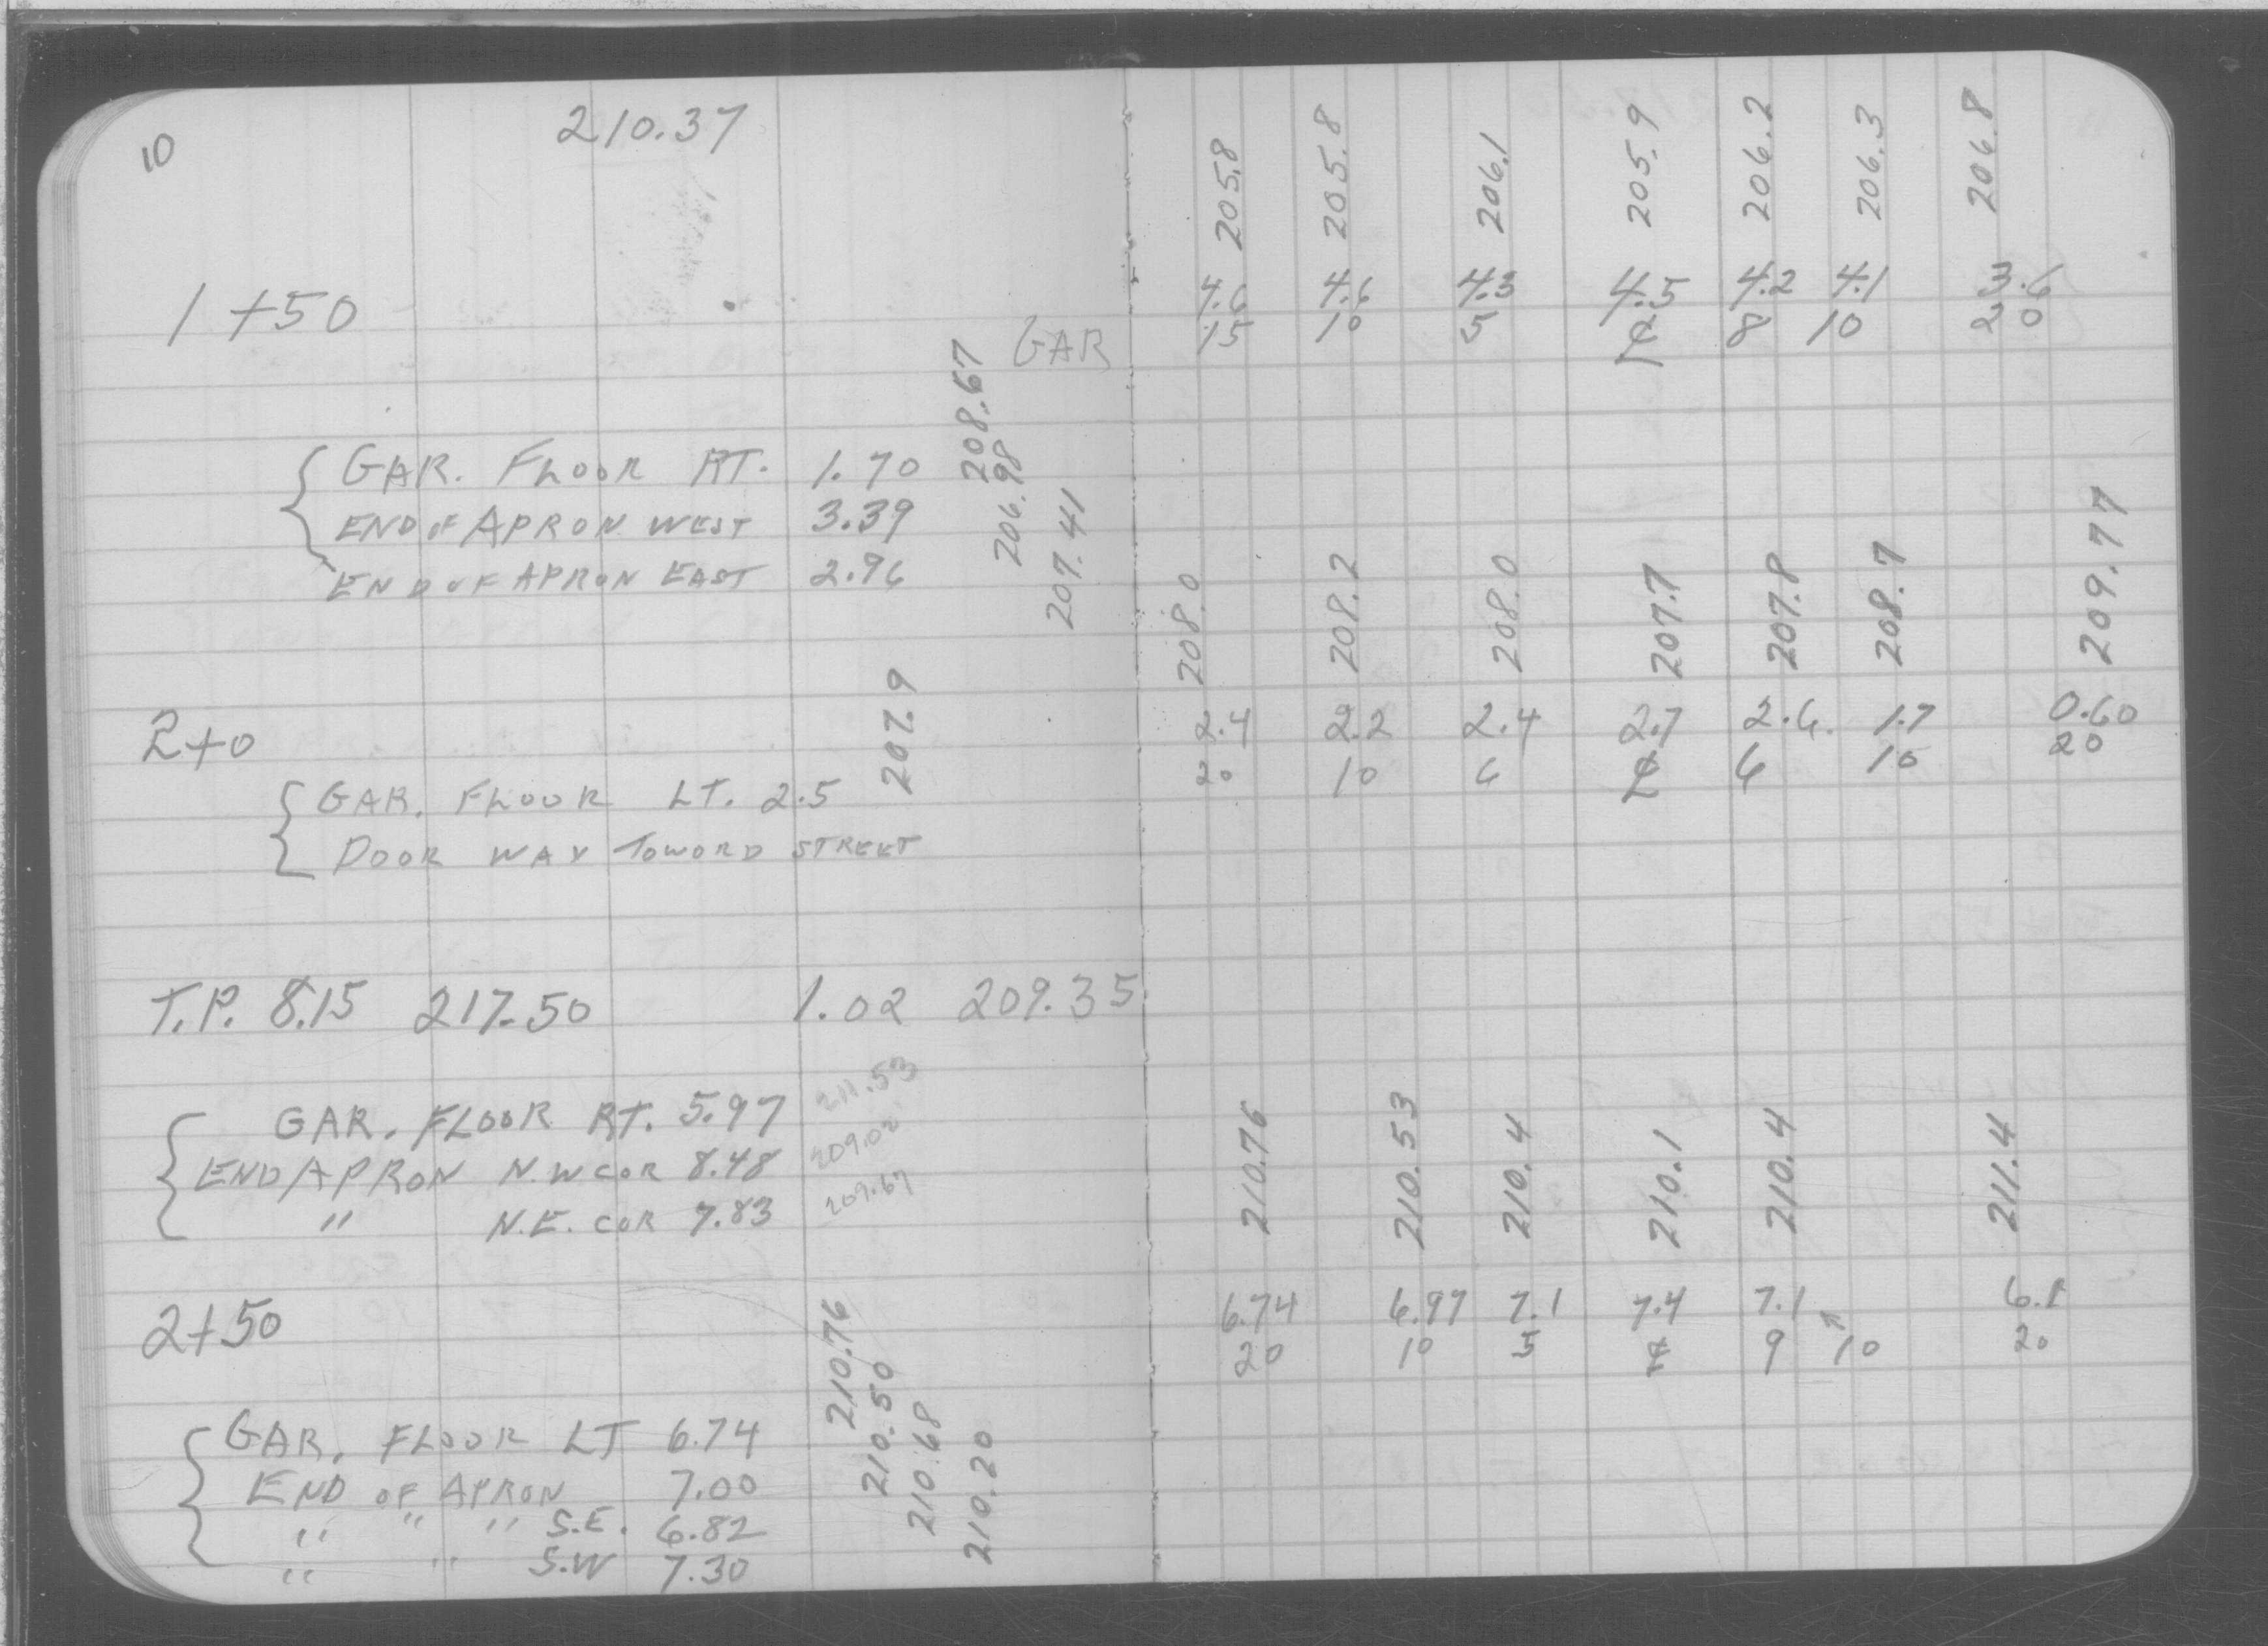 10
210.37
205.8 205.8 206.1 205.9 206.2 206.3 206.8
1+50
4.6 4.6 4.3 4.5 4.2 4.1 3.6
15 10 5 ℄ 8 10 20
GAR
GAR. FLOOR RT. 1.70 208.67
END OF APRON WEST 3.39 206.98
END OF APRON EAST 2.96 207.41
208.0 208.2 208.0 207.7 207.8 208.7 209.77
2+0
2.4 2.2 2.4 2.7 2.6 1.7 0.60
20 10 6 ℄ 6 10 20
GAR. FLOOR LT. 2.5 207.9
DOOR WAY TOWORD STREET
T.P. 8.15 217.50 1.02 209.35
GAR. FLOOR RT. 5.97 211.53
END APRON N.W COR 8.48 209.02
" N.E. COR 7.83 209.67
210.76 210.53 210.4 210.1 210.4 211.4
2+50
6.74 6.97 7.1 7.4 7.1 ↑ 6.1
20 10 5 ℄ 9 10 20
GAR. FLOOR LT 6.74 210.76
END OF APRON 7.00 210.50
" " " S.E. 6.82 210.68
" " S.W 7.30 210.20